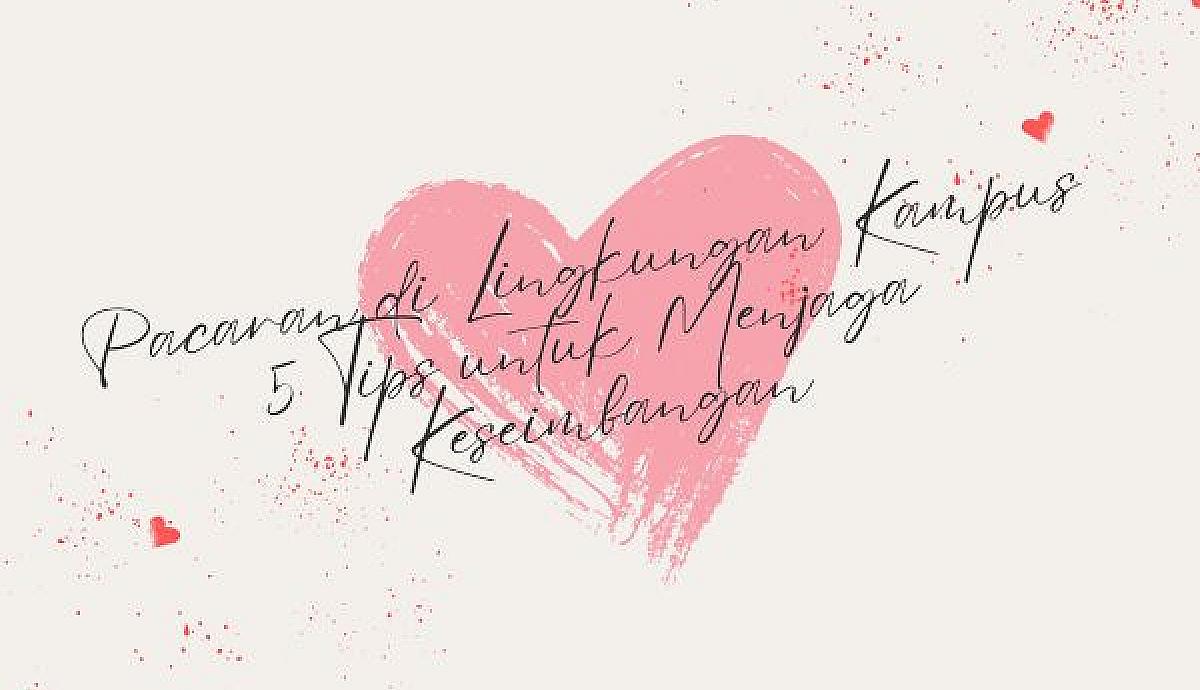 Pacaran di Lingkungan Kampus
5 Tips untuk Menjaga
Keseimbangan